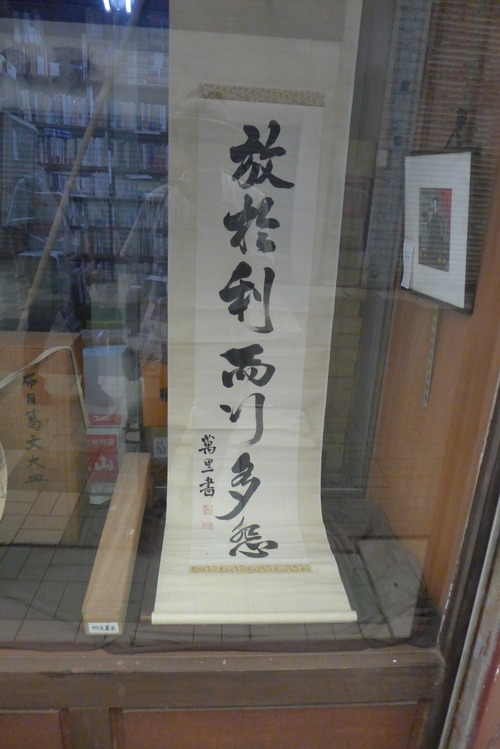 放於利而行多怨
萬里書
布目篤文大皿
山